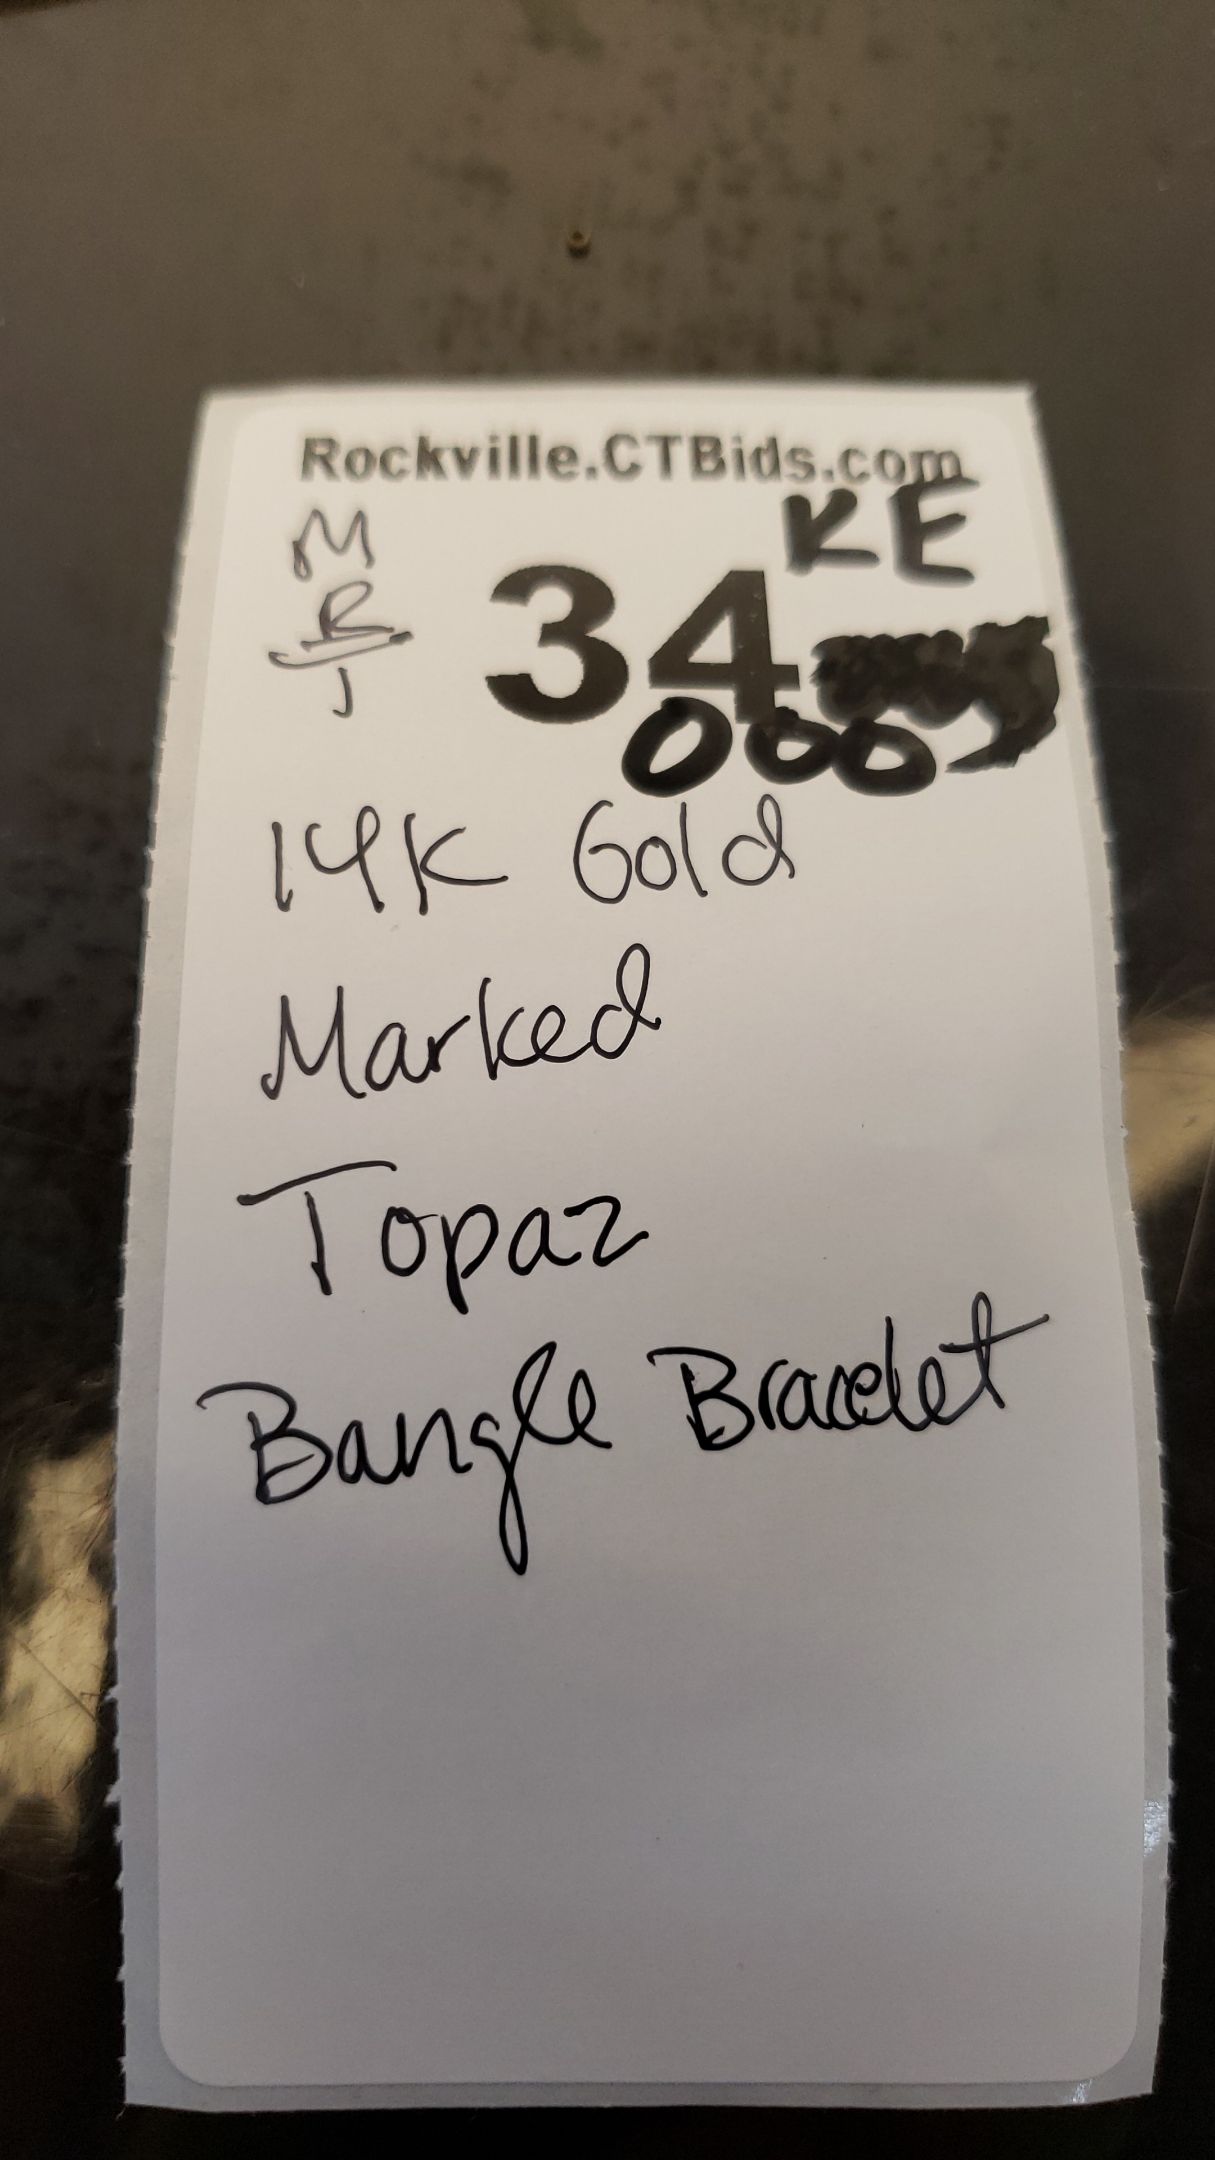 Rockville.CTBids.com
KE
M
R
J
34
000
14K Gold
Marked
Topaz
Bangle Bracelet